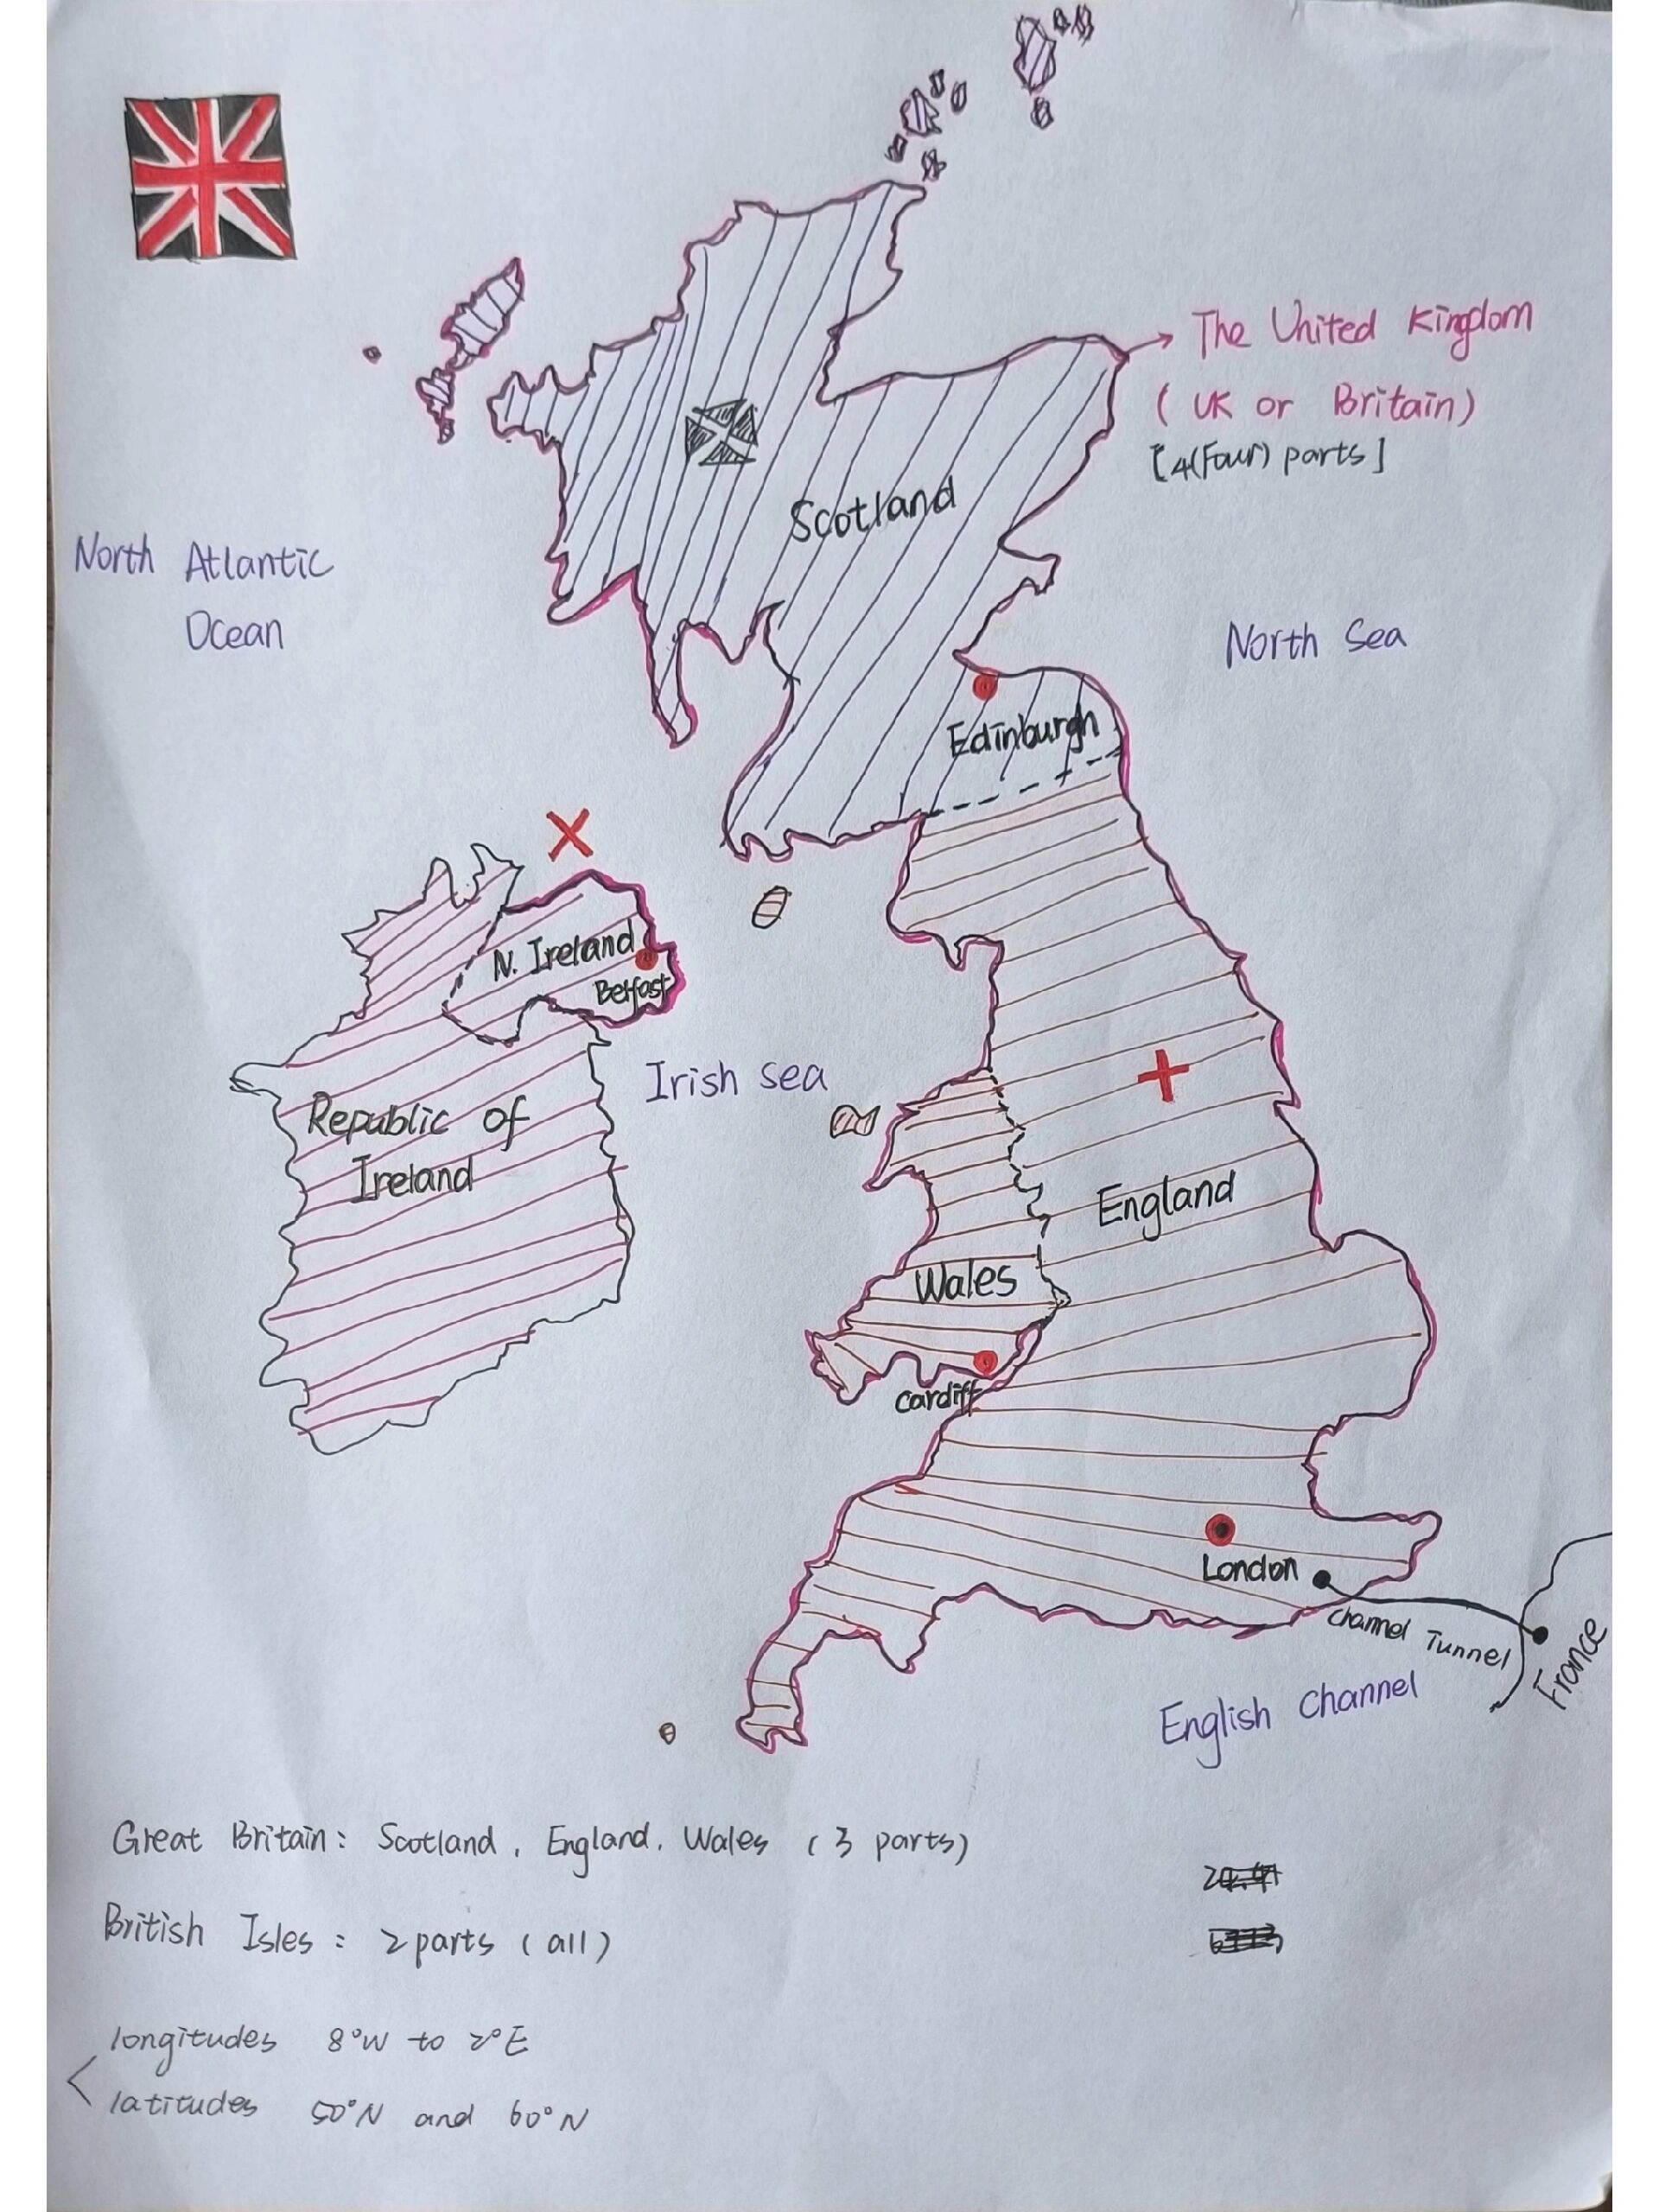 The United Kingdom
(UK or Britain)
[4(Four) parts]
Scotland
North Atlantic
Ocean
North Sea
Edinburgh
N. Ireland
Belfast
Irish Sea
Republic of
Ireland
England
Wales
Cardiff
London
Channel Tunnel
France
English Channel
Great Britain: Scotland, England, Wales (3 parts)
British Isles: 2 parts (all)
longitudes 8°W to 2°E
latitudes 50°N and 60°N